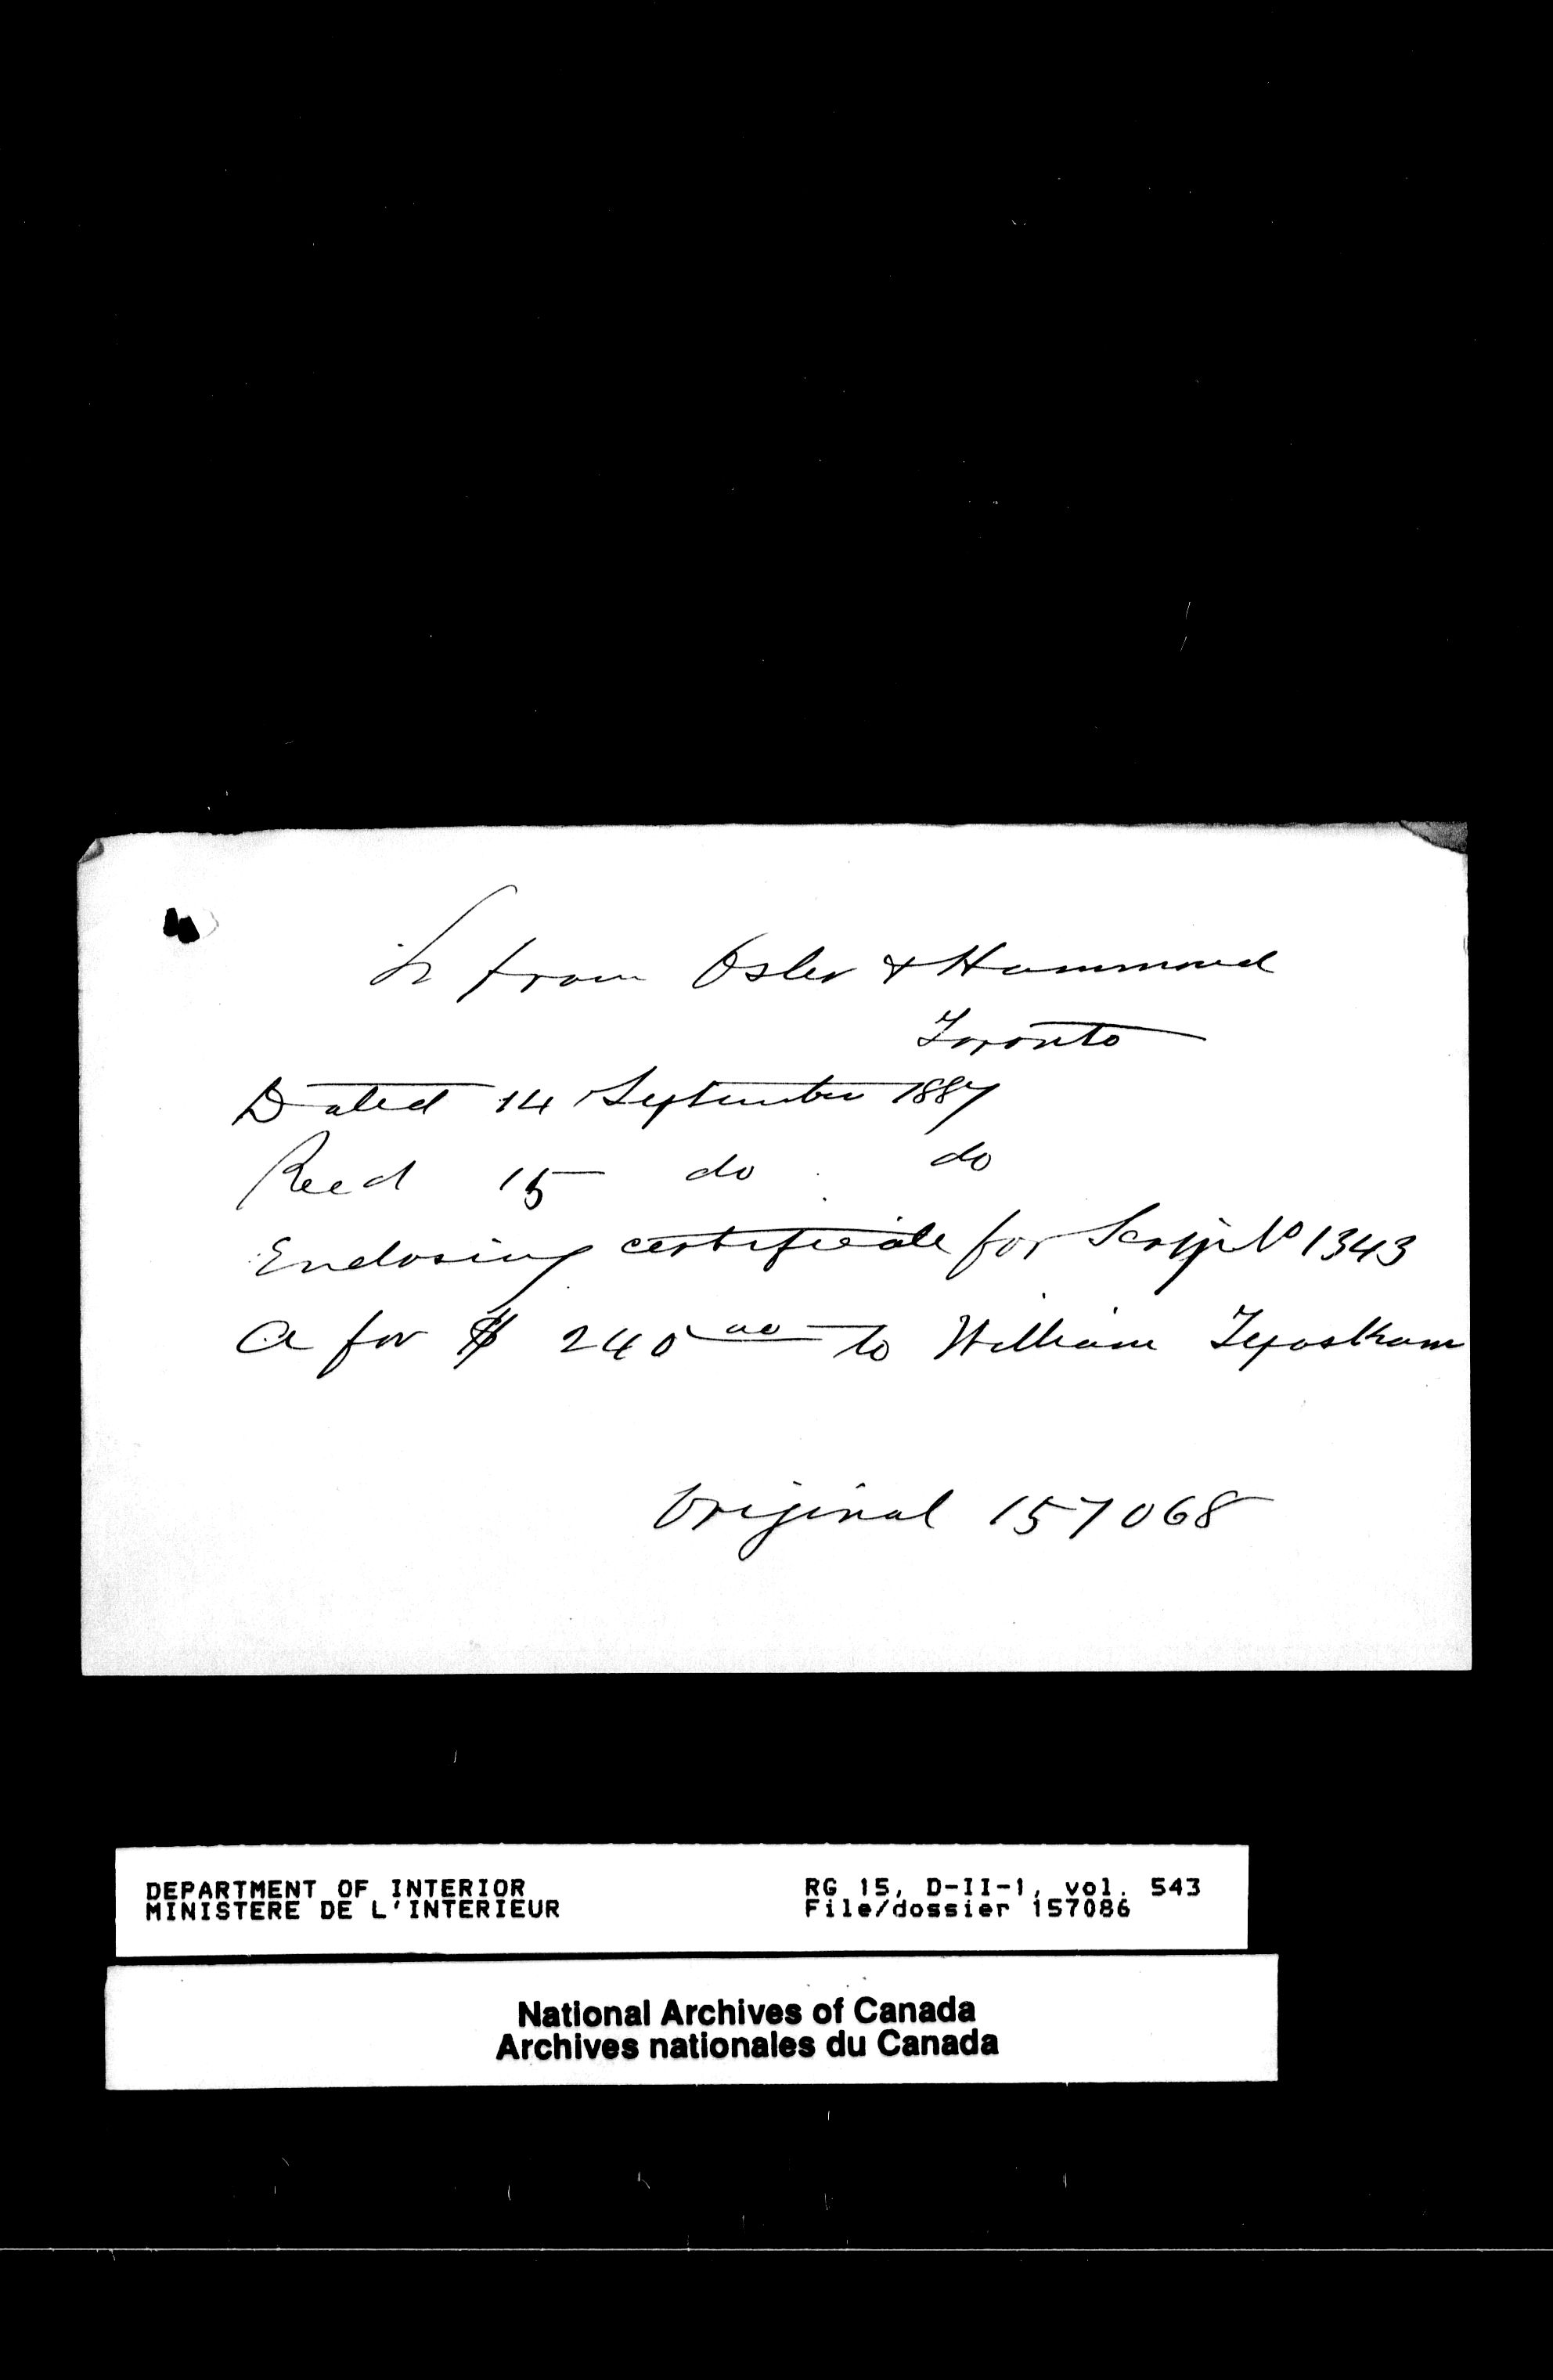 Lr from Osler & Hammond
Toronto
Dated 14 September 1887
Recd 15 do do
Enclosing certificate for Scrip No 1343
A for $ 240 00 to William
Original 157068
DEPARTMENT OF INTERIOR
MINISTERE DE L'INTERIEUR
RG 15, D-II-1, vol. 543
File/dossier 157086
National Archives of Canada
Archives nationales du Canada